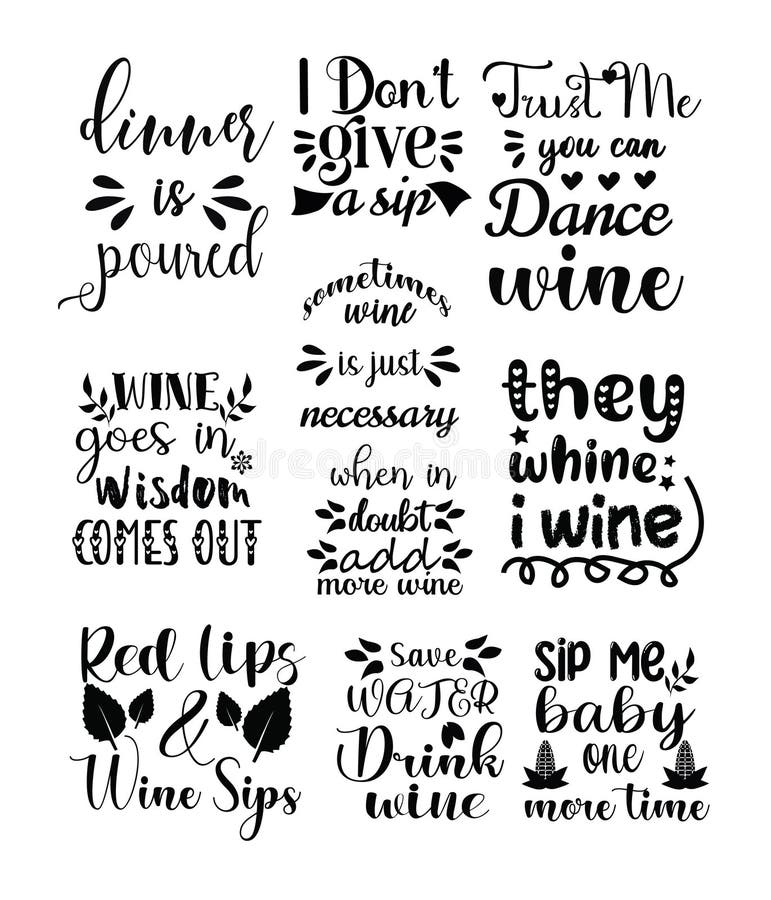 dinner
is
poured
I Don't
give
a sip
Trust Me
you can
Dance
wine
sometimes
wine
is just
necessary
WINE
goes in
Wisdom
COMES OUT
when in
doubt
add
more wine
they
whine
i wine
Red lips
&
Wine Sips
Save
WATER
Drink
wine
sip me
baby
one
more time
dreamstime